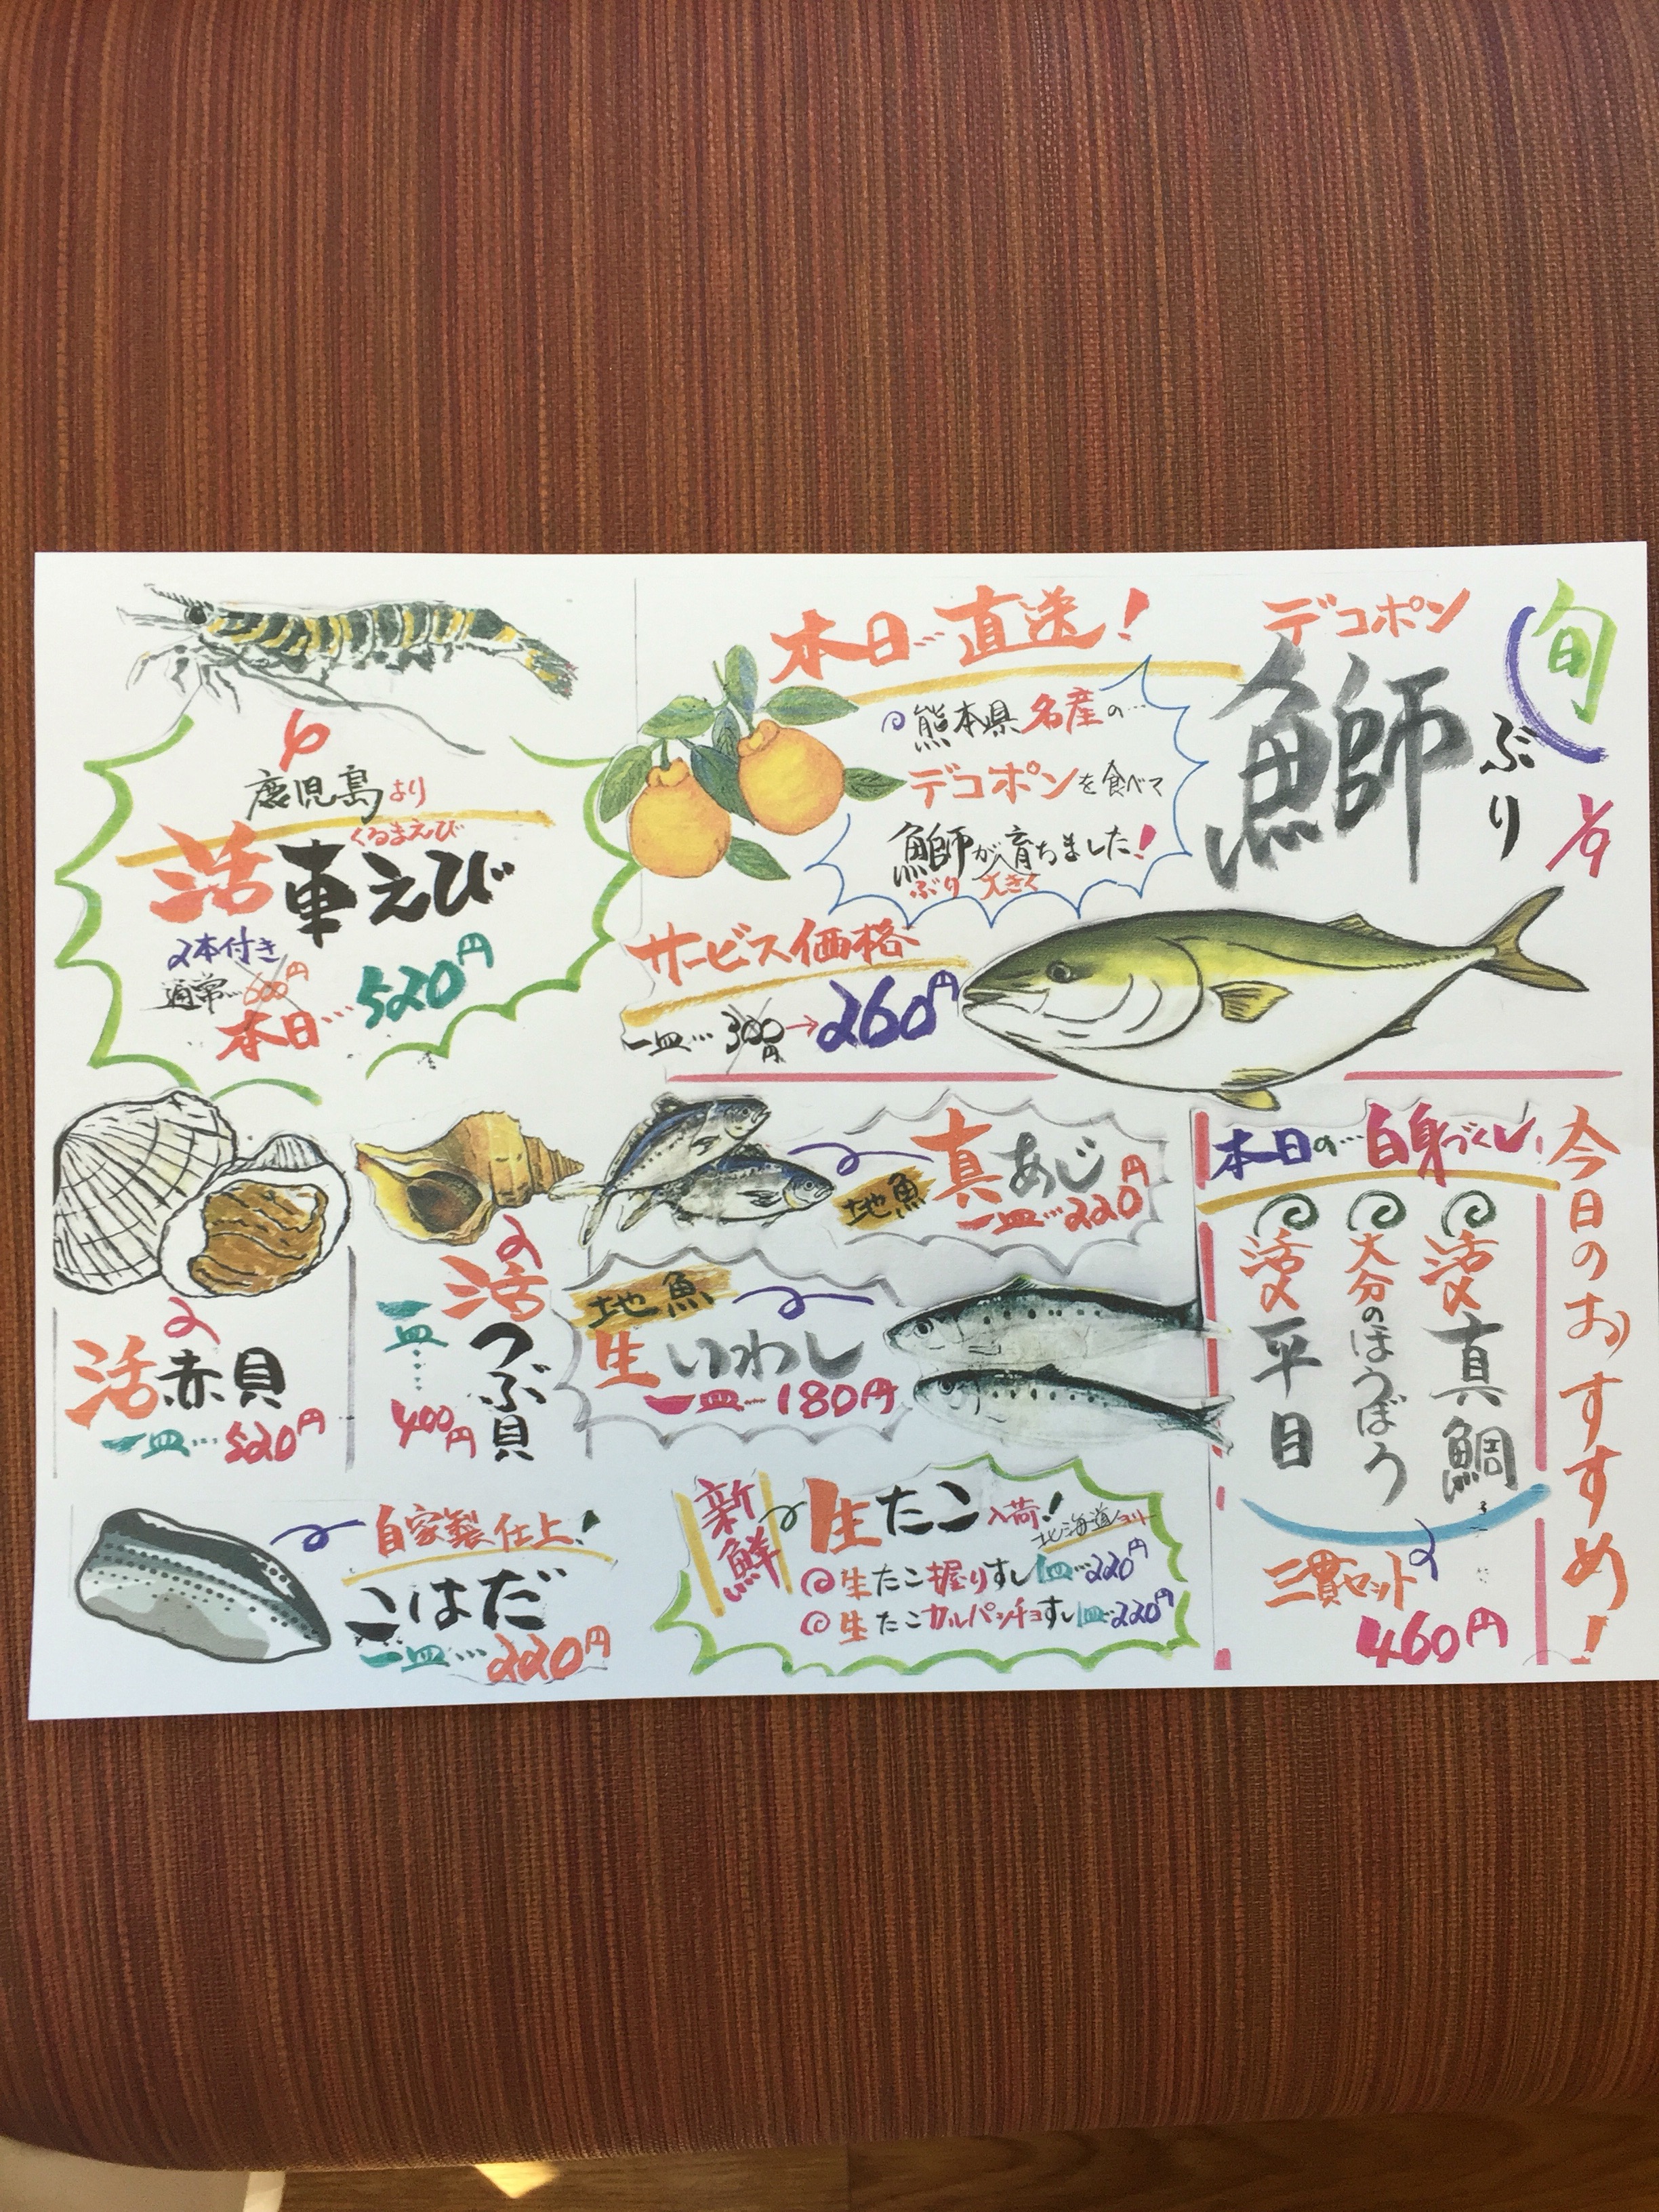 今日のおすすめ!
旬
1/9
デコポン
鰤
ぶり
本日…直送!
熊本県名産の…
デコポンを食べて
鰤が育ちました!
ぶり 大きく
サービス価格
一皿…300円→260円
鹿児島より
くるまえび
活車えび
2本付き
通常…600円
本日…520円
本日の…白身づくし
活〆真鯛
大分のほうぼう
活〆平目
三貫セット
460円
地魚
真あじ
一皿…220円
地魚
生いわし
一皿…180円
活つぶ貝
一皿…
400円
活赤貝
一皿…520円
自家製仕上!
こはだ
一皿…220円
新鮮
生たこ入荷!
北海道より
生たこ握りすし一皿…220円
生たこカルパッチョすし一皿…220円